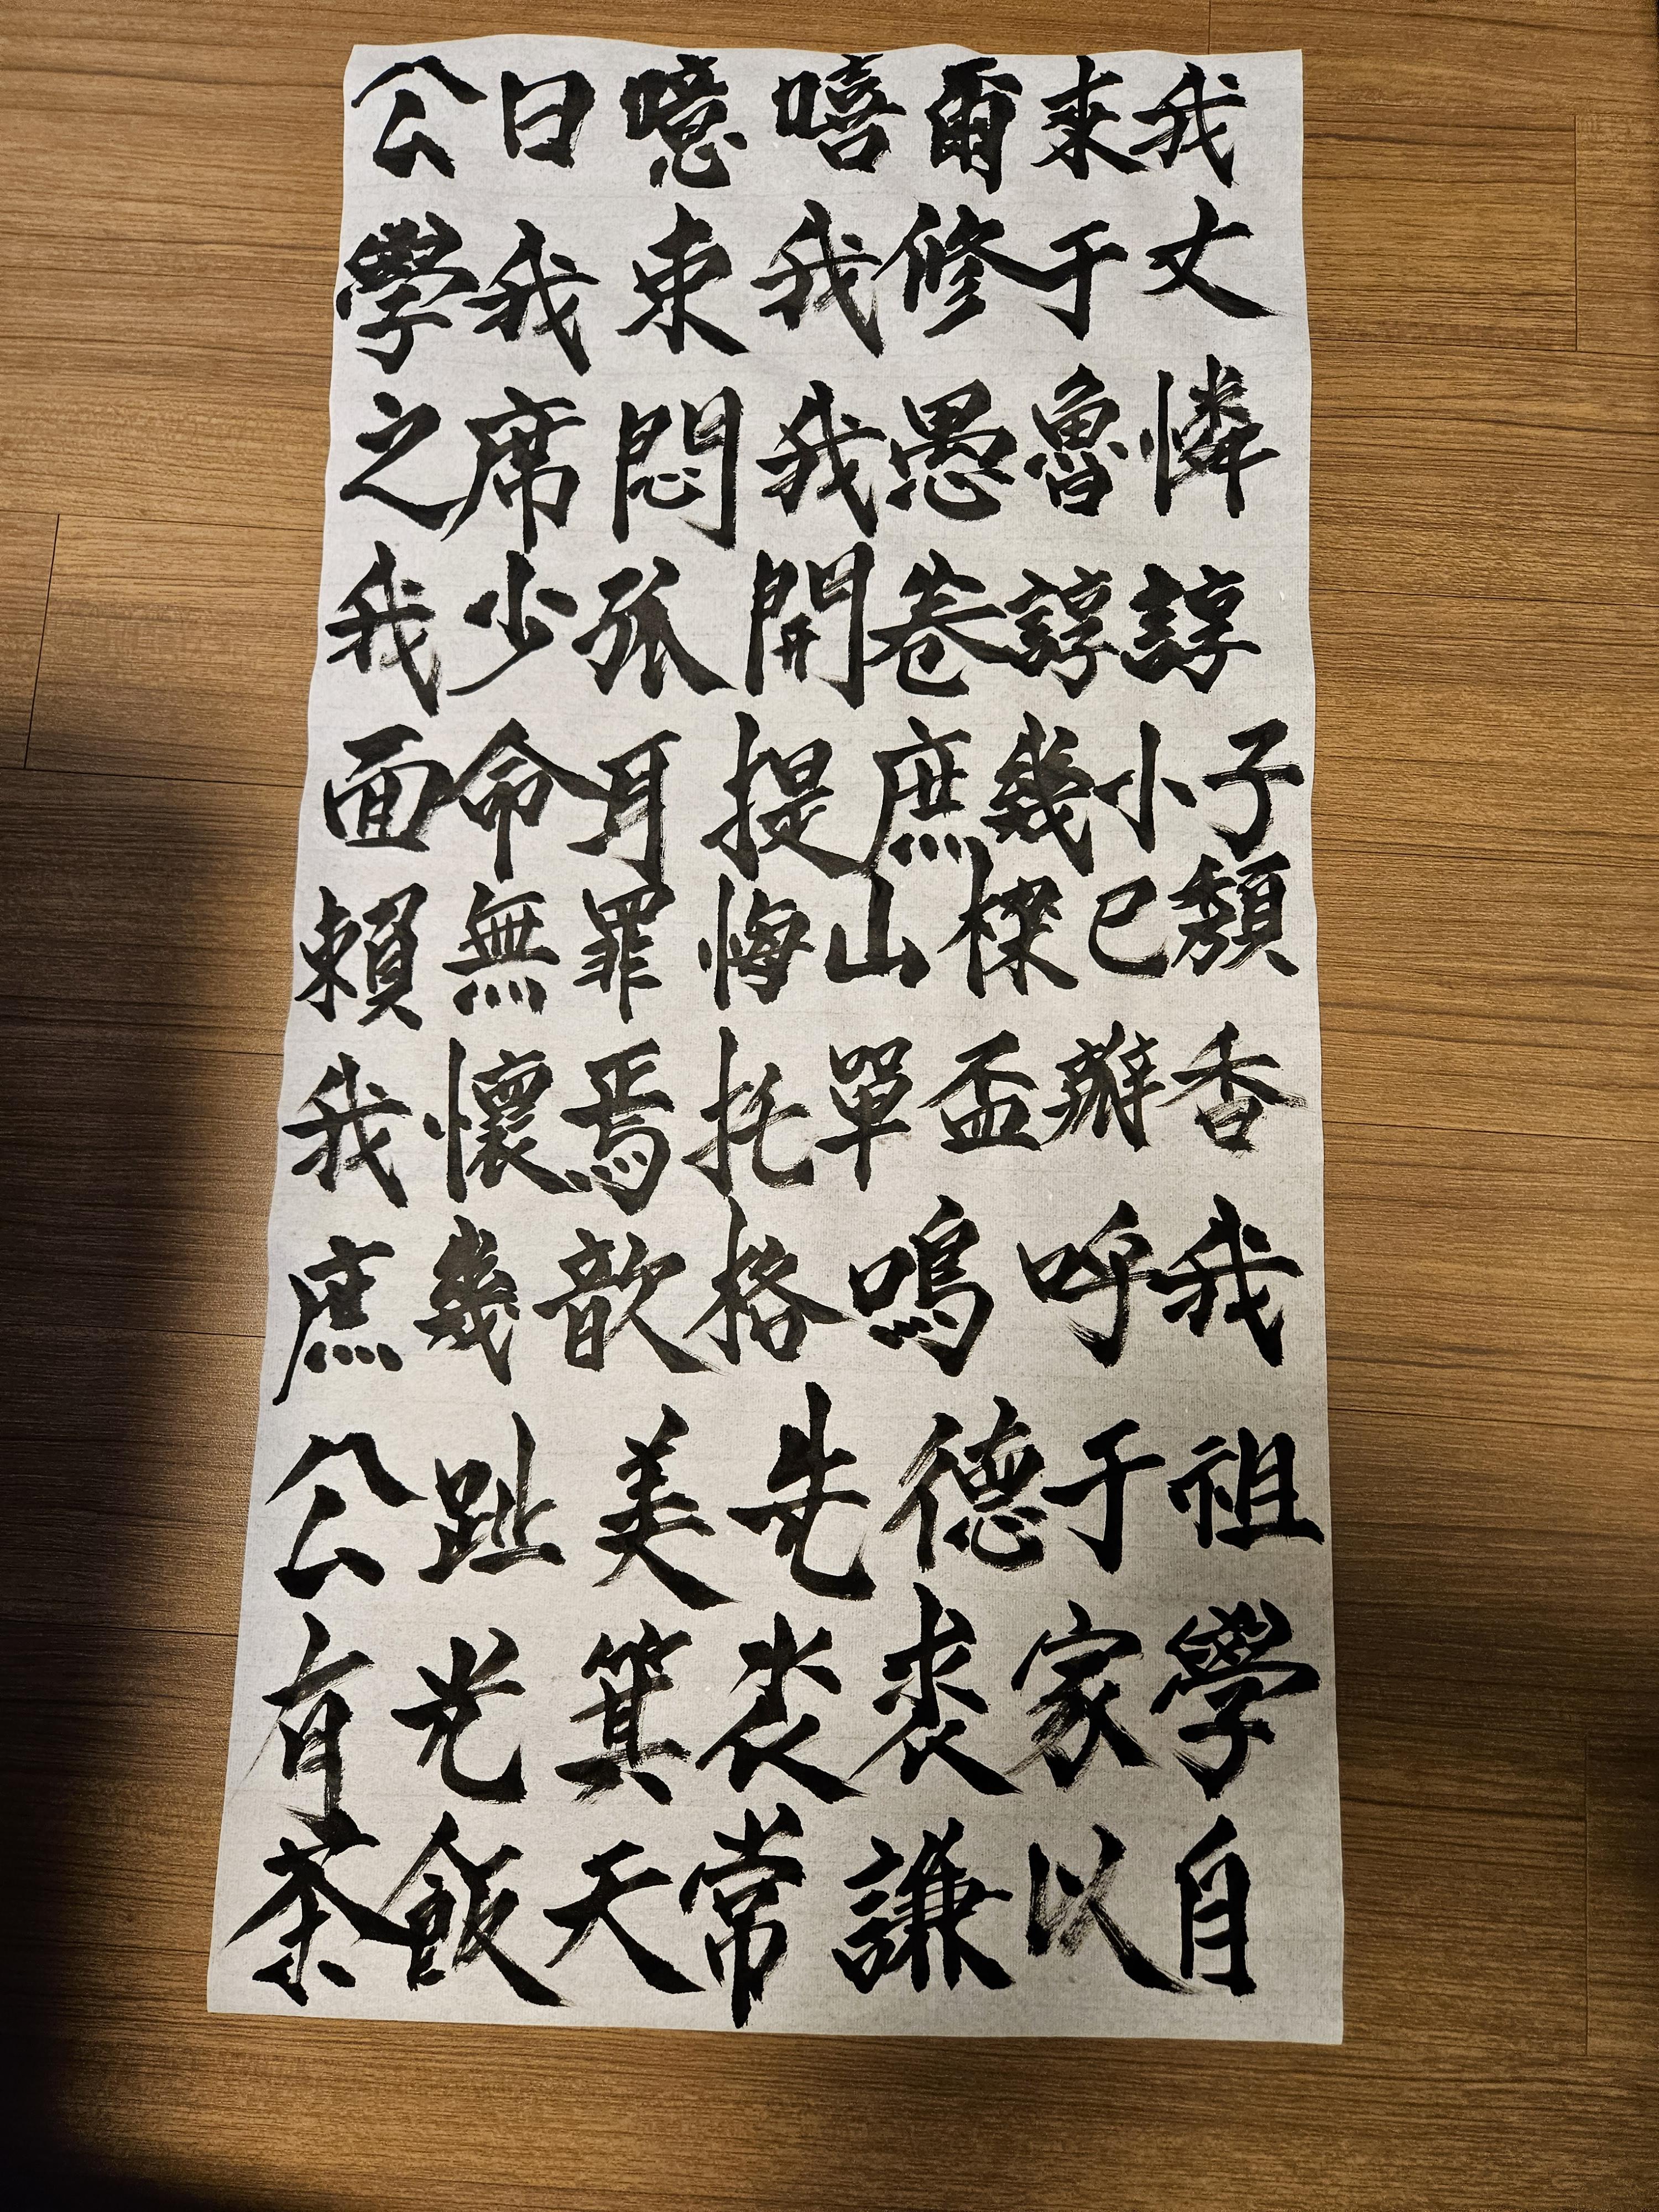 公曰噫嘻爾來我
學我束我修于丈
之席悶我愚魯憐
我少孤開卷諄諄
面命耳提庶幾小子
賴無罪悔山樑已頹
我懷焉托單盃瓣香
庶幾歆格嗚呼我
公趾美先德于祖
有光箕裘裘家學
茶飯天常謙以自